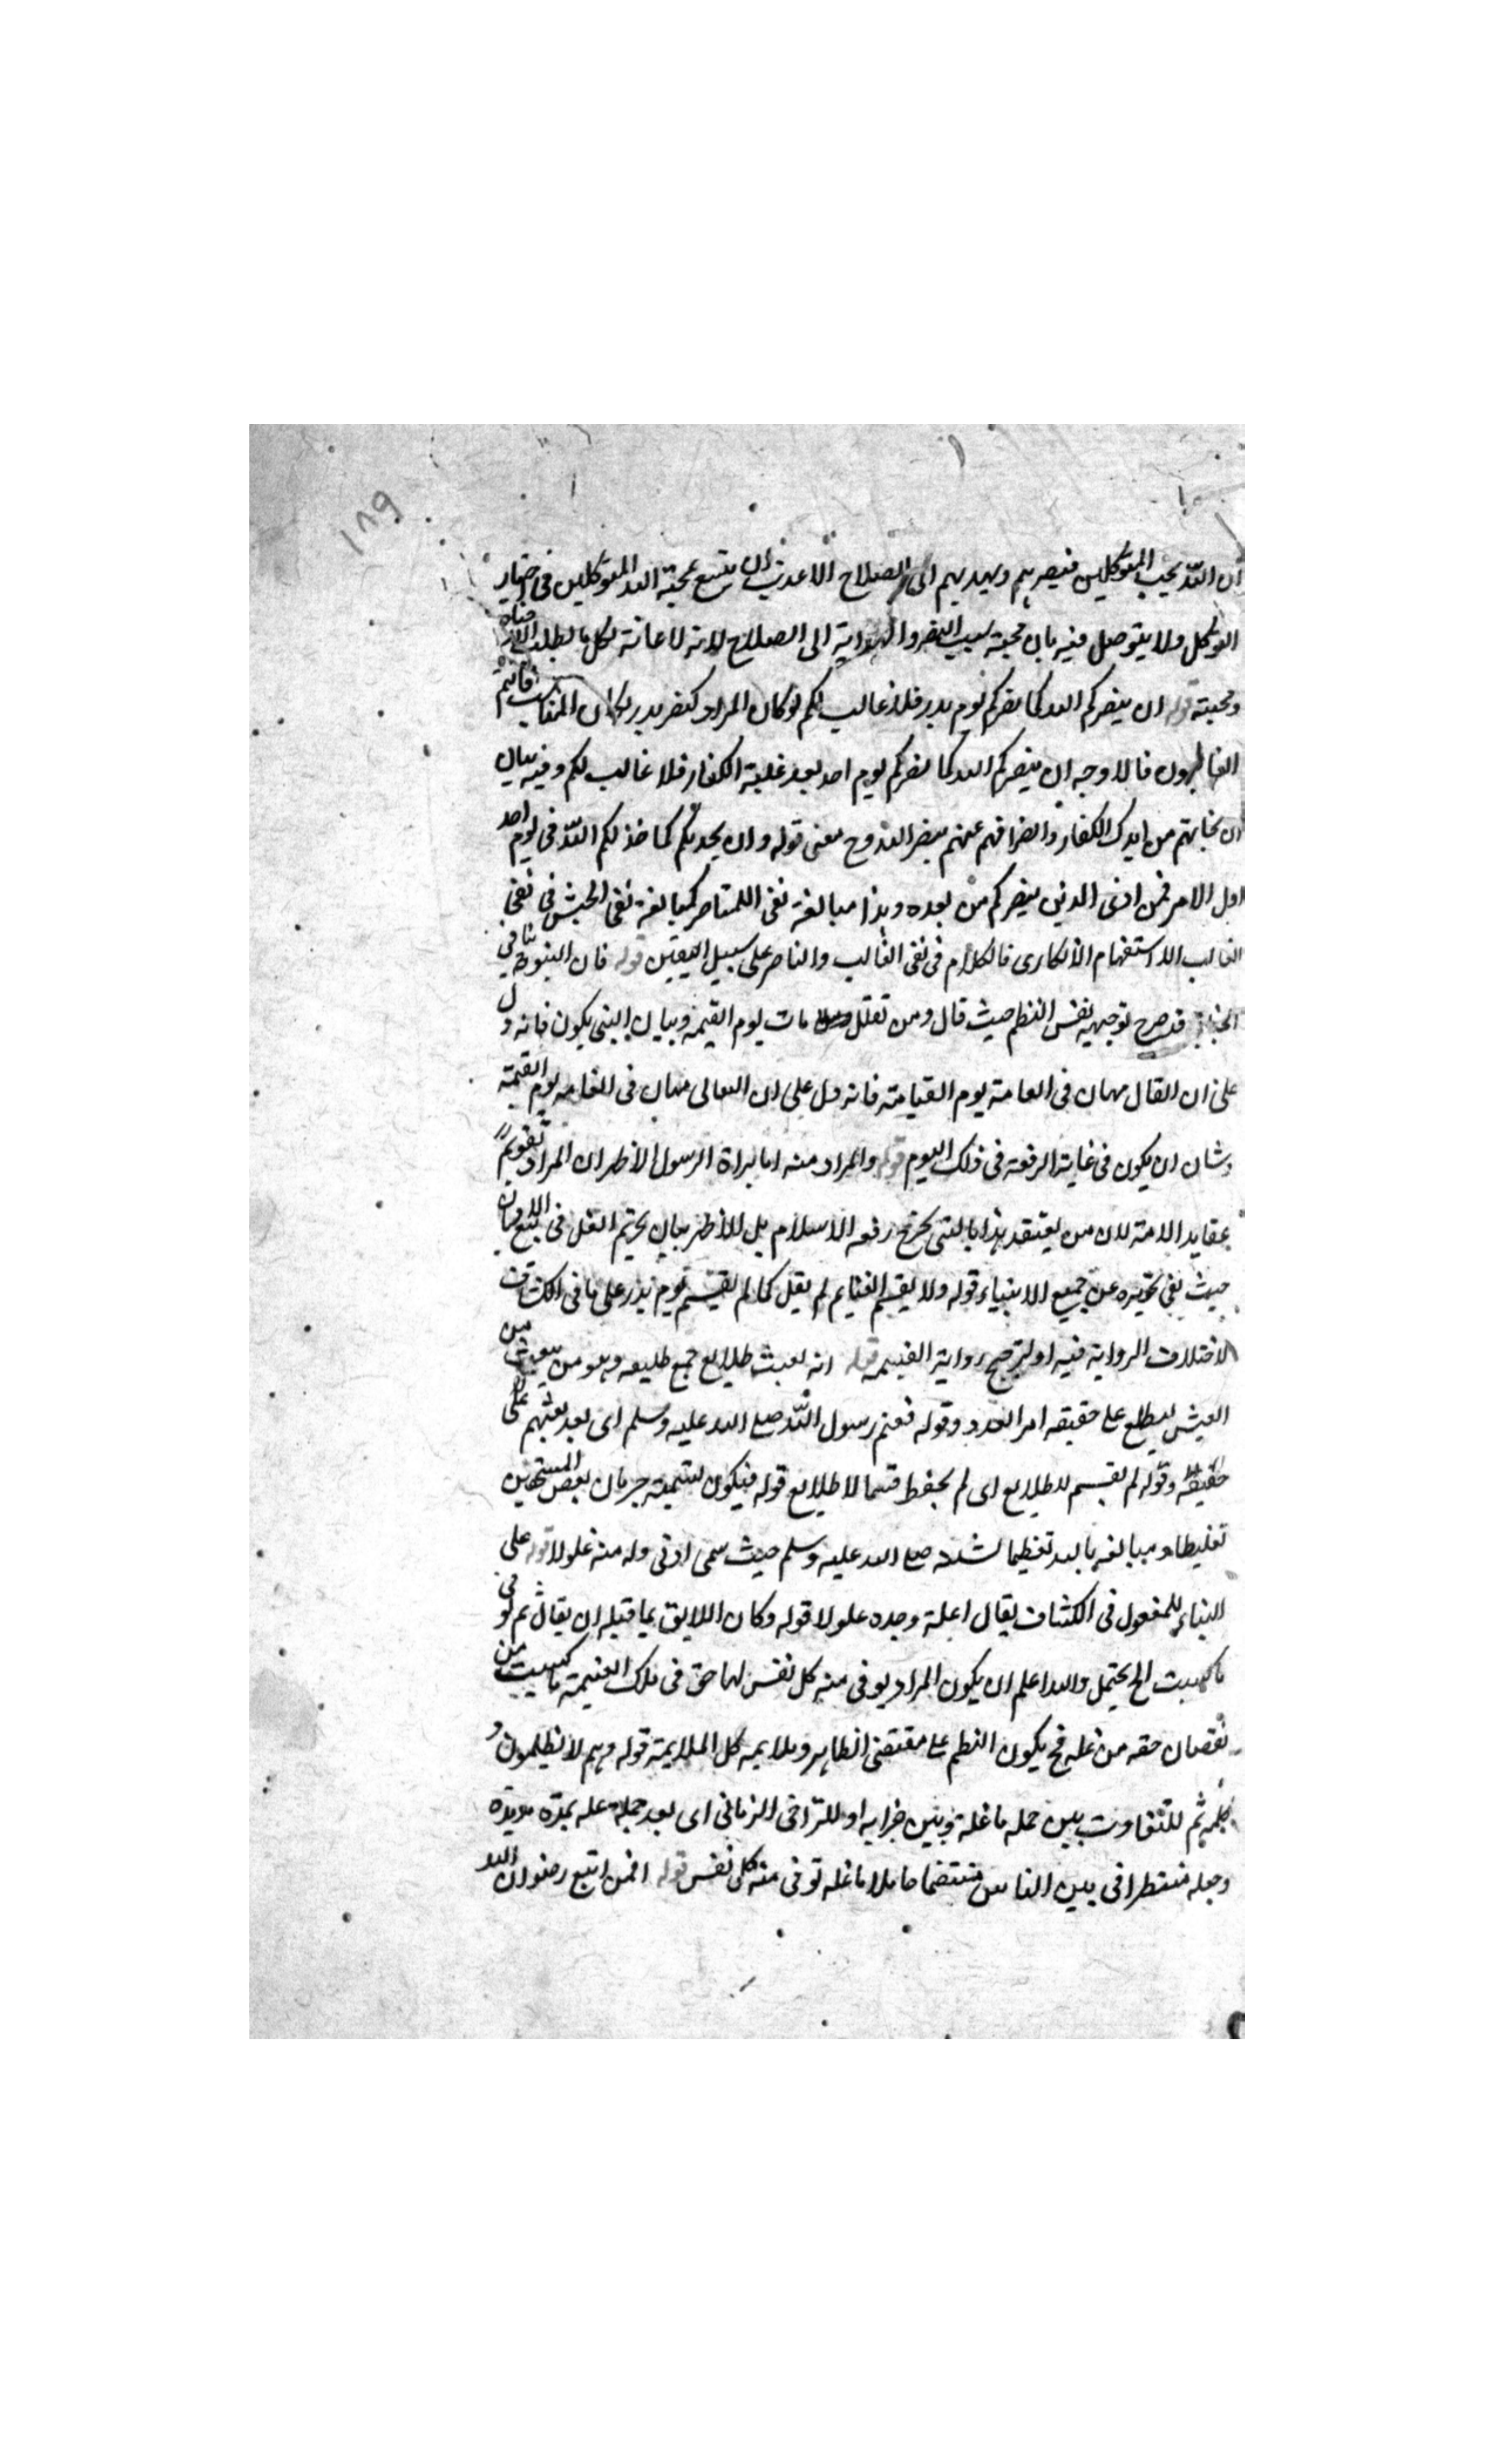 ١٨٩
ان اللّه يحب المتوكلين فينصرهم ويهديهم الى الصلاح الاعذب ان يتبع محبة الله المتوكلين فى اختيار
التوكل ولا يتوصل فيه بان محبته سبب النصر والهداية الى الصلاح لانه لا عانة لكل ما يطلب
ومحبته قوله ان ينصركم الله كما نصركم يوم بدر فلا غالب لكم لو كان المراد كنصر بدر لكان المناسب فانتم
الغالبون فالاوجه ان ينصركم الله كما نصركم يوم احد بعد غلبة الكفار فلا غالب لكم وفيه بيان
ان نجاتهم من ايدى الكفار وانصرافهم عنهم بنصر الله وح معنى قوله وان يخذلكم كما خذلكم اللّه فى يوم احد
اول الامر فمن ادنى الذين ينصركم من بعده وهذا مبالغة نفى الناصر كمبالغة نفى الجنس فى نفى
الغالب الاستفهام الانكارى فالكلام فى نفى الغالب والناصر على سبيل اليقين قوله فان النبوة تنافى
الخيانة قد صرح توجيهه نفس النظم حيث قال ومن يغلل يات يوم القيمة وبيان النبى يكون فانه دل
على ان الغال مهان فى العامة يوم القيامة فانه دل على ان الغال مهان فى العامة يوم القيمة
وشان ان يكون فى غاية الرفعة فى ذلك اليوم قوله والمراد منه اما براة الرسول الاظهر ان المراد تقويم
عقايد الامة لان من يعتقد هذا بالنبى يخرج ربقة الاسلام بل الاظهر بيان تحريم الغل فى جميع الاديان
حيث نفى تجويزه عن جميع الانبياء قوله ولا يقسم الغنايم لم يقل كما لم يقسم يوم بدر على ما فى الكشاف
لاختلاف الرواية فيه او لترجيح رواية القسمة قوله انه بعث طلايع جمع طليعه وهو من يبعث من
الجيش ليطلع على حقيقه امر العدو وقوله فغنم رسول اللّه صلى الله عليه وسلم اى بعد بعثهم على
حقيقة وقوله لم يقسم للطلايع اى لم يحفظ قسما لا طلايع قوله فيكون تسمية حرمان بعض المستحقين
تغليظا ومبالغه بالله تعظيما لشانه صلى الله عليه وسلم حيث سمى ادنى وله منه غلولا قوله على
البناء للمفعول فى الكشاف يقال اغلة وجده غلولا قوله وكان اللايق بما قبله ان يقال ثم توفى
ما كسبت الخ يحتمل والله اعلم ان يكون المراد يوفى منه كل نفس لها حق فى تلك الغنيمة ما كسبت من
نقصان حقه من غله فح يكون النظم على مقتضى الظاهر وملايمه كل الملايمة قوله وهم لا يظلمون و
كلمة ثم للتفاوت بين حمله ما غله وبين جزايه او للتراخى الزمانى اى بعد حمله غله بمدة مديدة
وجعله منتظرا فى بين الناس مفتضحا حاملا ما غله توفى منه كل نفس قوله افمن اتبع رضوان الله